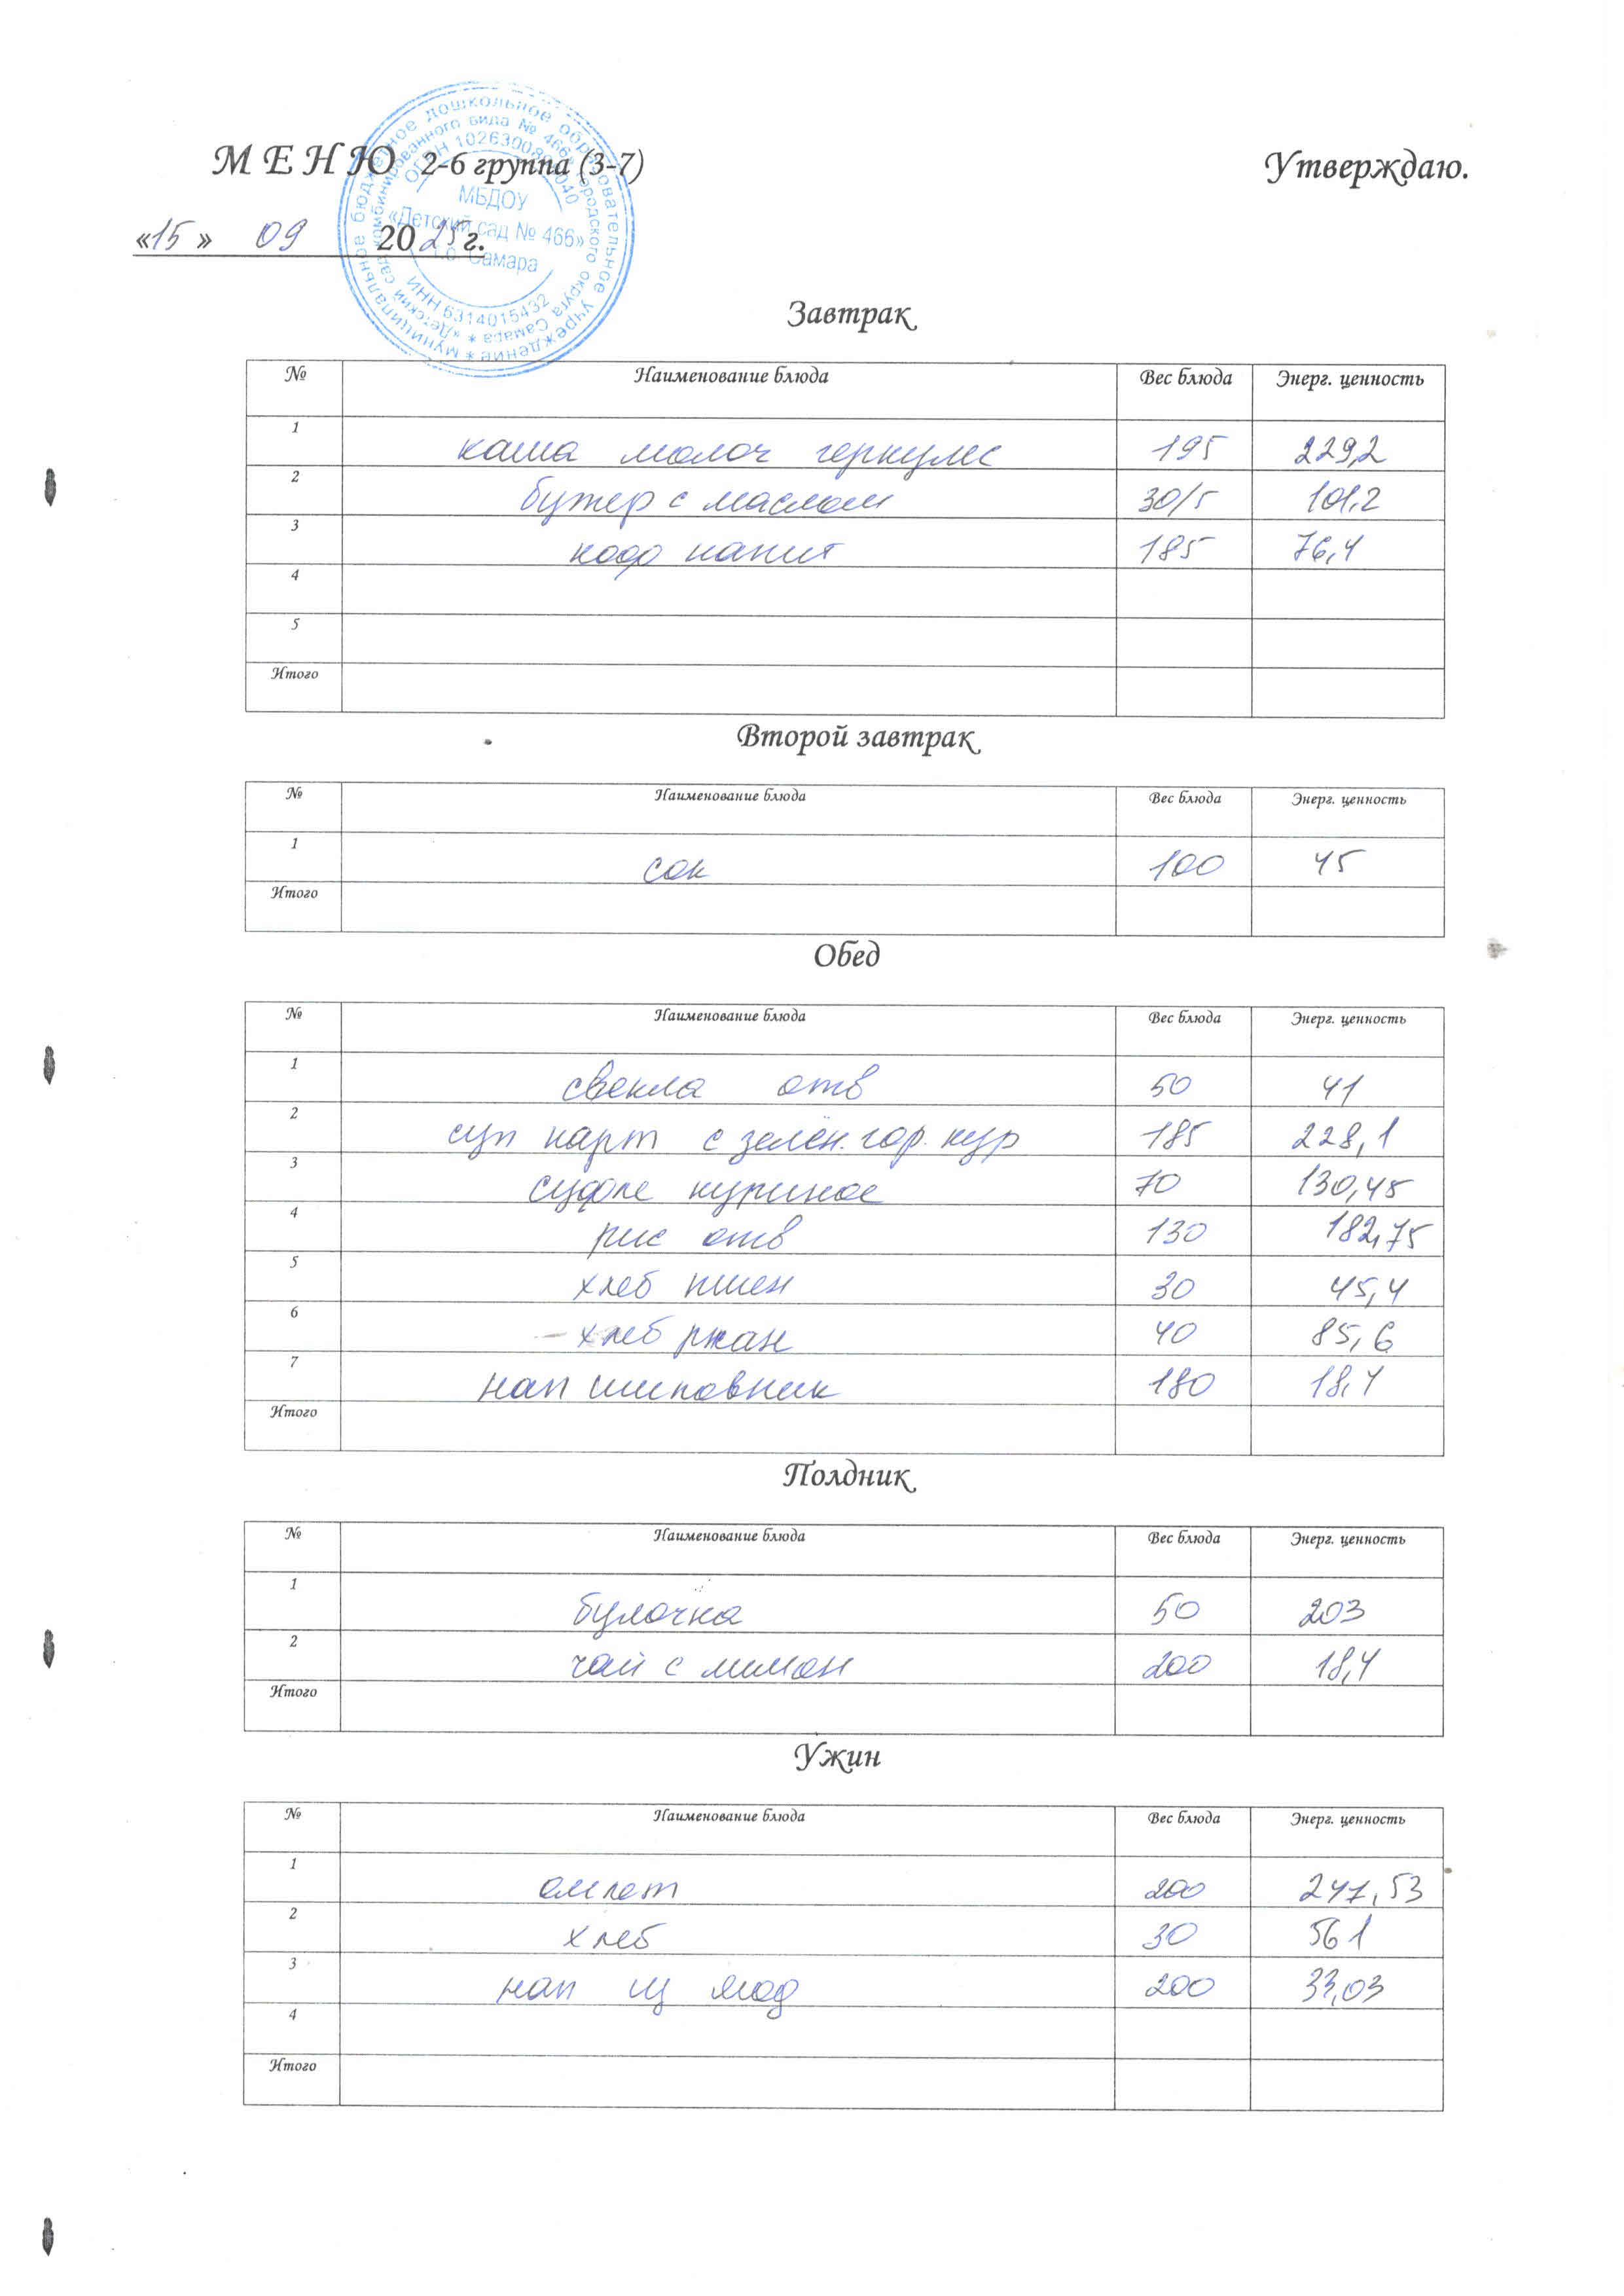 М Е Н Ю 2-6 группа (3-7) Утверждаю.
«15» 09 2025 г.
МБДОУ
«Детский сад № 466»
г.о. Самара
ИНН 6314015432
Завтрак
№ Наименование блюда Вес блюда Энерг. ценность
1 каша молоч геркулес 195 229,2
2 бутер с маслом 30/5 101,2
3 кофр напит 185 76,4
4
5
Итого
Второй завтрак
№ Наименование блюда Вес блюда Энерг. ценность
1 сок 100 45
Итого
Обед
№ Наименование блюда Вес блюда Энерг. ценность
1 свекла отв 50 41
2 суп карт с зелён. гор. кур 185 228,1
3 суфле куриное 70 130,45
4 рис отв 130 182,75
5 хлеб пшен 30 45,4
6 хлеб ржан 40 85,6
7 нап шиповник 180 18,4
Итого
Полдник
№ Наименование блюда Вес блюда Энерг. ценность
1 булочка 50 203
2 чай с лимон 200 18,4
Итого
Ужин
№ Наименование блюда Вес блюда Энерг. ценность
1 омлет 200 247,53
2 хлеб 30 561
3 нап из ягод 200 33,03
4
Итого